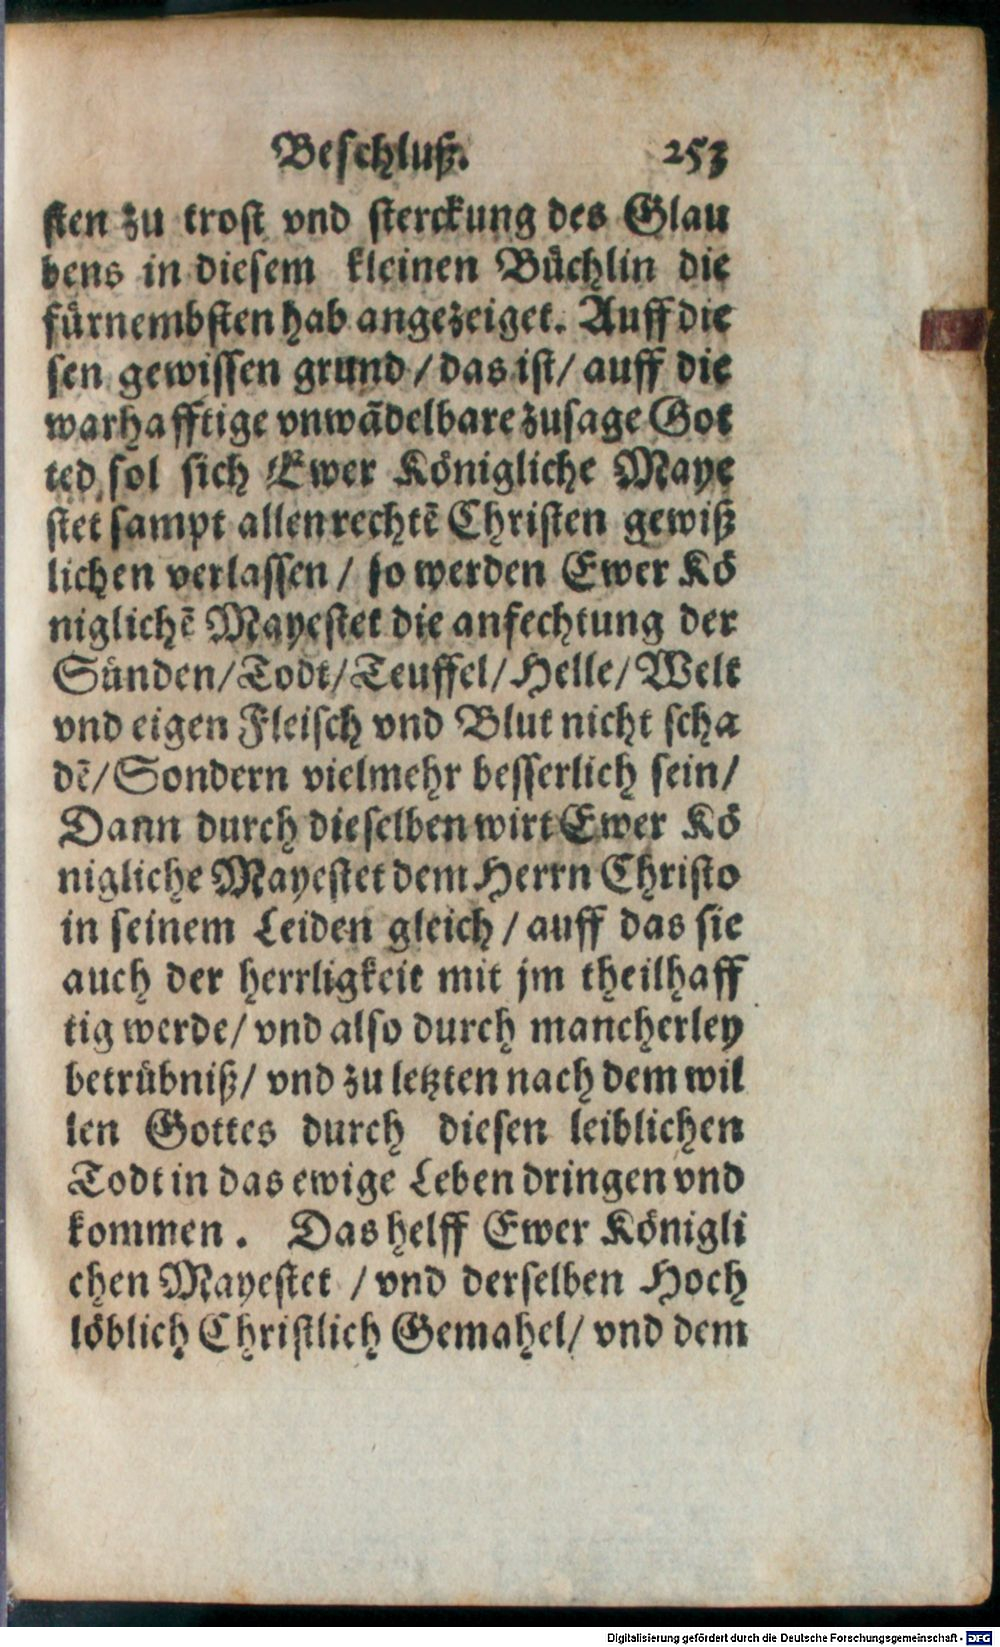 Beschluß. 253
sten zu trost vnd sterckung des Glau
bens in diesem kleinen Bůchlin die
fürnembsten hab angezeiget. Auff die
sen gewissen grund / das ist / auff die
warhafftige vnwādelbare zusage Got
ted sol sich Ewer Königliche Maye
stet sampt allen rechtē Christen gewiß
lichen verlassen / so werden Ewer Kö
niglichē Mayestet die anfechtung der
Sünden / Todt / Teuffel / Helle / Welt
vnd eigen Fleisch vnd Blut nicht scha
dē / Sondern vielmehr besserlich sein /
Dann durch dieselben wirt Ewer Kö
nigliche Mayestet dem Herrn Christo
in seinem Leiden gleich / auff das sie
auch der herrligkeit mit jm theilhaff
tig werde / vnd also durch mancherley
betrübniß / vnd zu letzten nach dem wil
len Gottes durch diesen leiblichen
Todt in das ewige Leben dringen vnd
kommen. Das helff Ewer Königli
chen Mayestet / vnd derselben Hoch
löblich Christlich Gemahel / vnd dem
Digitalisierung gefördert durch die Deutsche Forschungsgemeinschaft - DFG